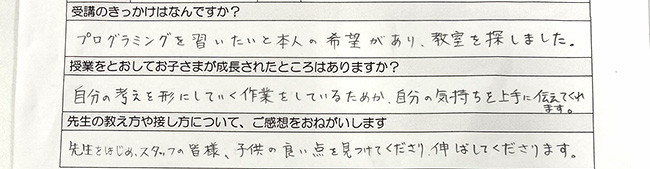 受講のきっかけはなんですか？
プログラミングを習いたいと本人の希望があり、教室を探しました。
授業をとおしてお子さまが成長されたところはありますか？
自分の考えを形にしていく作業をしているためか、自分の気持ちを上手に伝えてくれ
ます。
先生の教え方や接し方について、ご感想をおねがいします
先生をはじめ、スタッフの皆様、子供の良い点を見つけてくださり、伸ばしてくださります。